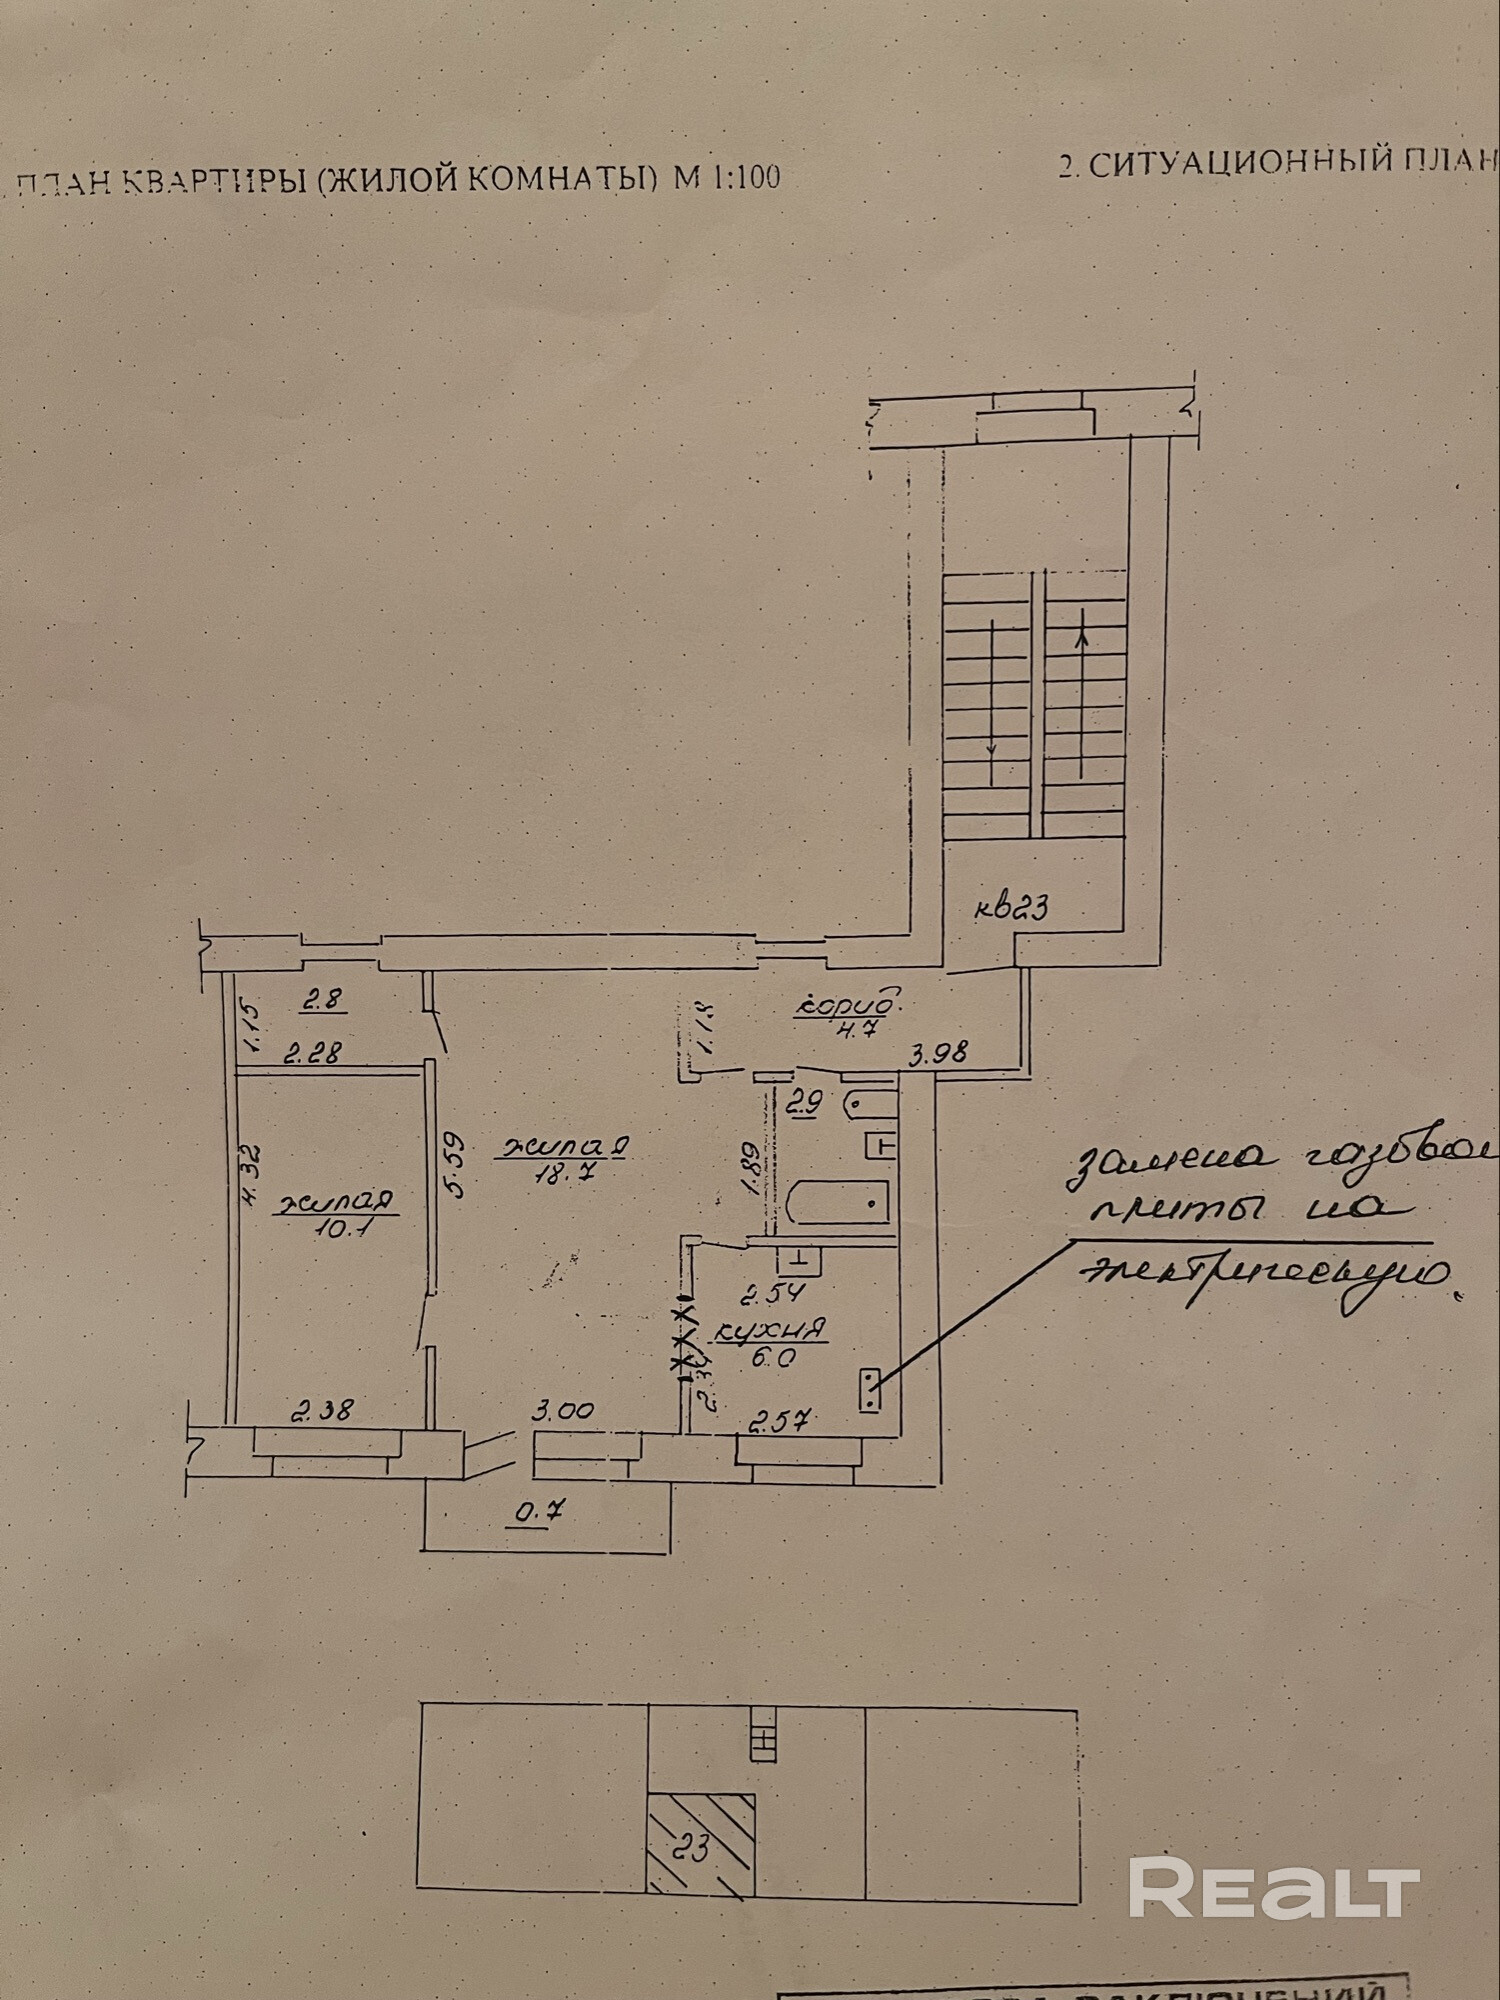 ПЛАН КВАРТИРЫ (ЖИЛОЙ КОМНАТЫ) М 1:100
2. СИТУАЦИОННЫЙ ПЛАН
кв23
2.8
1.15
2.28
1.18
корид.
4.7
3.98
2.9
жилая
18.7
5.59
1.89
4.32
жилая
10.1
замена газовой
плиты на
электрическую.
2.54
кухня
6.0
2.34
2.38
3.00
2.57
0.7
23
REALT